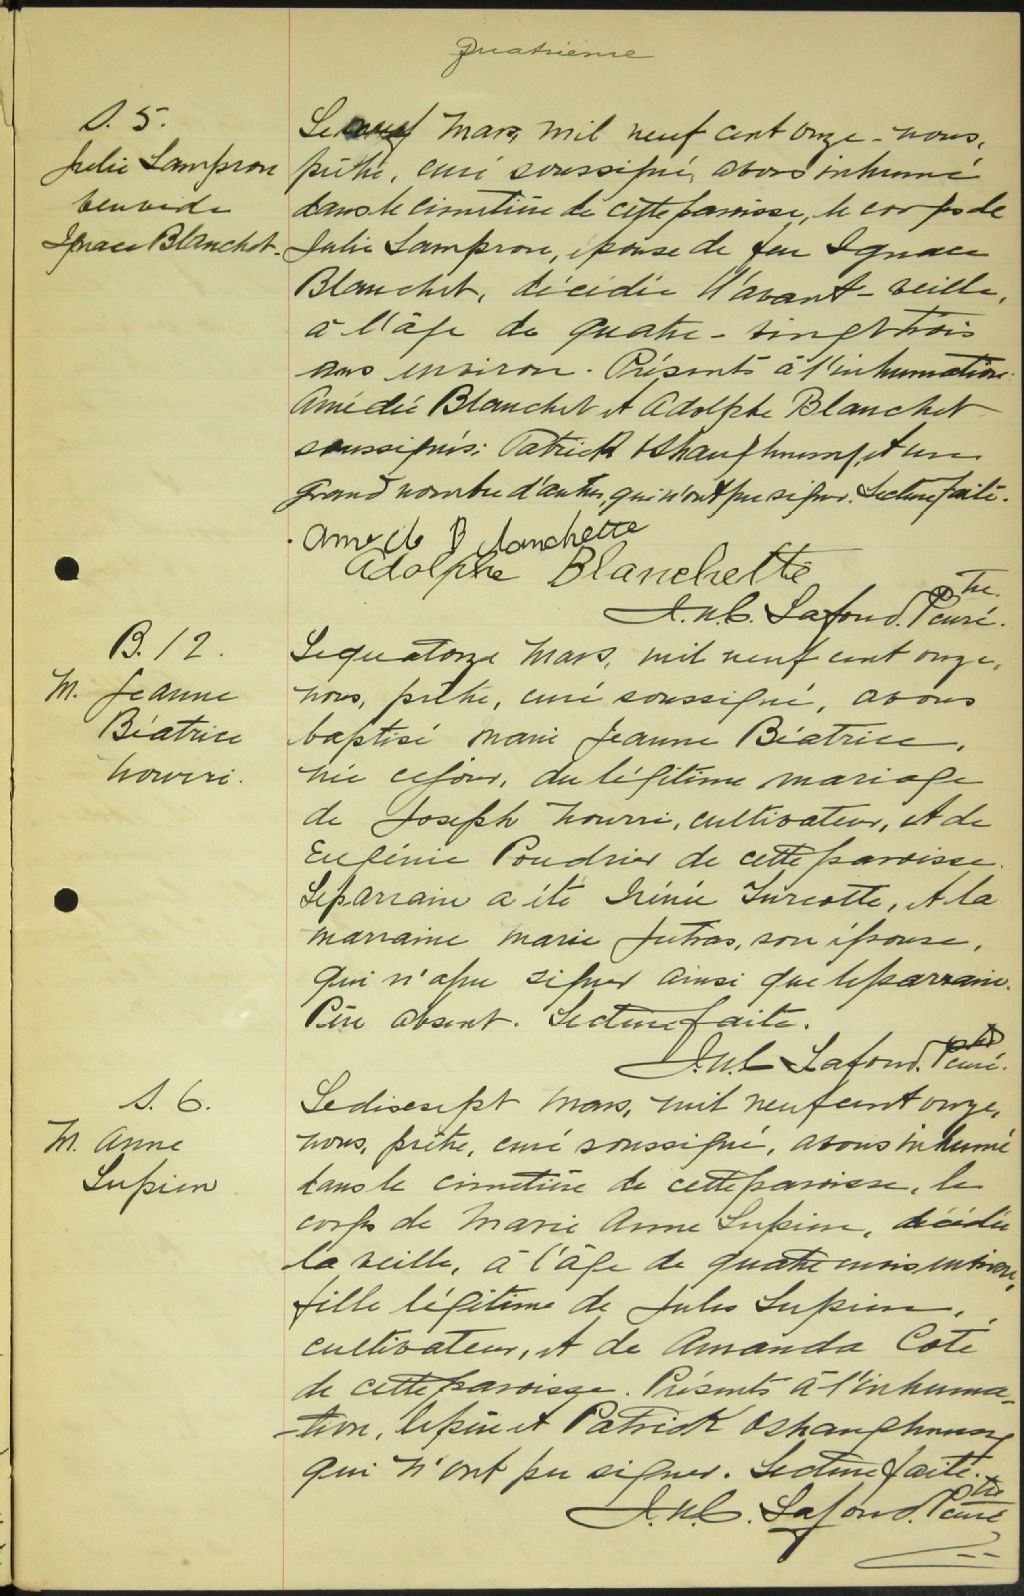 Quatrième
S. 5.
Julie Lampron
veuve de
Ignace Blanchet.
Le neuf Mars, mil neuf cent onze - nous,
prêtre, curé soussigné, avons inhumé
dans le cimetière de cette paroisse, le corps de
Julie Lampron, épouse de feu Ignace
Blanchet, décédée l'avant-veille,
à l'âge de quatre-vingt trois
ans environ. Présents à l'inhumation
Amédée Blanchet et Adolphe Blanchet
soussignés; Patrick Oshaughnessy, et un
grand nombre d'autres, qui n'ont pu signer. Lecture faite.
Amede Blanchette
Adolphe Blanchette
J.N.C. Lafond. Ptre curé.
B. 12.
M. Jeanne
Béatrice
Nourri.
Le quatorze Mars, mil neuf cent onze,
nous, prêtre, curé soussigné, avons
baptisé Marie Jeanne Béatrice,
née ce jour, du légitime mariage
de Joseph Nourri, cultivateur, et de
Eugénie Poudrier de cette paroisse.
Le parrain a été Irénée Turcotte, et la
marraine Marie Jutras, son épouse,
qui n'a pu signer ainsi que le parrain.
Père absent. Lecture faite.
J.N.C Lafond. Ptre curé.
S. 6.
M. Anne
Lupien
Le dix sept Mars, mil neuf cent onze,
nous, prêtre, curé soussigné, avons inhumé
dans le cimetière de cette paroisse, le
corps de Marie Anne Lupien, décédée
la veille, à l'âge de quatre mois environ,
fille légitime de Jules Lupien,
cultivateur, et de Amanda Coté
de cette paroisse. Présents à l'inhuma-
-tion, le père et Patrick Oshaughnessy
qui n'ont pu signer. Lecture faite.
J.N.C. Lafond. Ptre curé